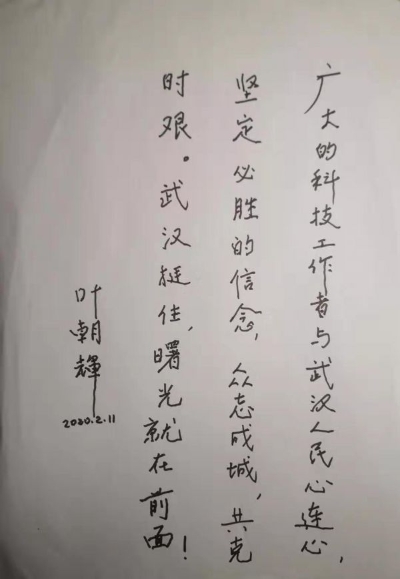 广大的科技工作者与武汉人民心连心，
坚定必胜的信念，众志成城，共克
时艰。武汉挺住，曙光就在前面！
叶朝輝
2020.2.11